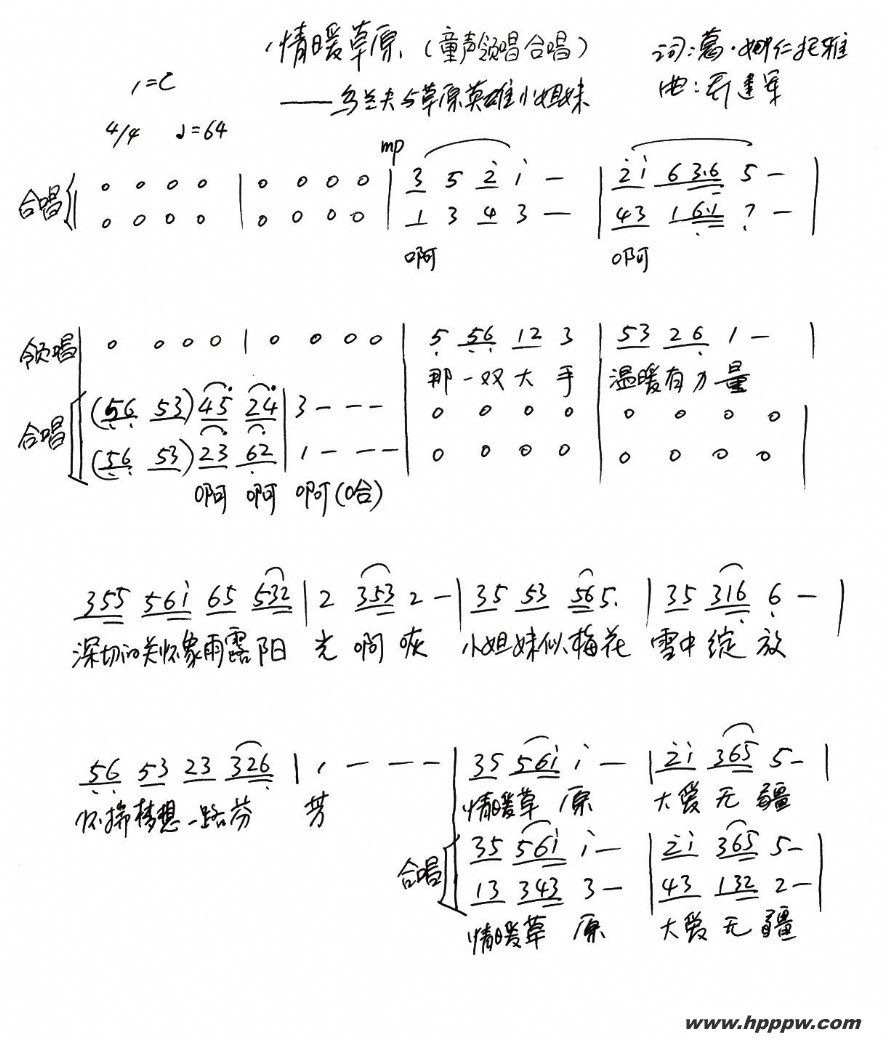 情暖草原（童声领唱合唱）
——乌兰夫与草原英雄小姐妹
词：葛·娜仁托雅
曲：建军
1=C
4/4 ♩=64
mp
合唱 0 0 0 0 | 0 0 0 0 | 3 5 2 1 — | 21 6 3.6 5 — |
0 0 0 0 | 0 0 0 0 | 1 3 4 3 — | 43 1 6.1 7 — |
啊 啊
领唱 0 0 0 0 | 0 0 0 0 | 5 56 12 3 | 53 26 1 — |
那一双大手 温暖有力量
合唱 (56 53) 45 24 | 3 — — — | 0 0 0 0 | 0 0 0 0
(56 53) 23 62 | 1 — — — | 0 0 0 0 | 0 0 0 0
啊 啊 啊(哈)
355 561 65 532 | 2 353 2 — | 35 53 56 5. | 35 316 6 — |
深切的关怀象雨露阳 光 啊 咴 小姐妹似梅花 雪中绽 放
56 53 23 326 | 1 — — — | 35 561 1 — | 21 365 5 — |
怀揣梦想一路芬 芳 情暖草 原 大爱无 疆
合唱 35 561 1 — | 21 365 5 — |
13 343 3 — | 43 132 2 — |
情暖草 原 大爱无 疆
www.hpppw.com